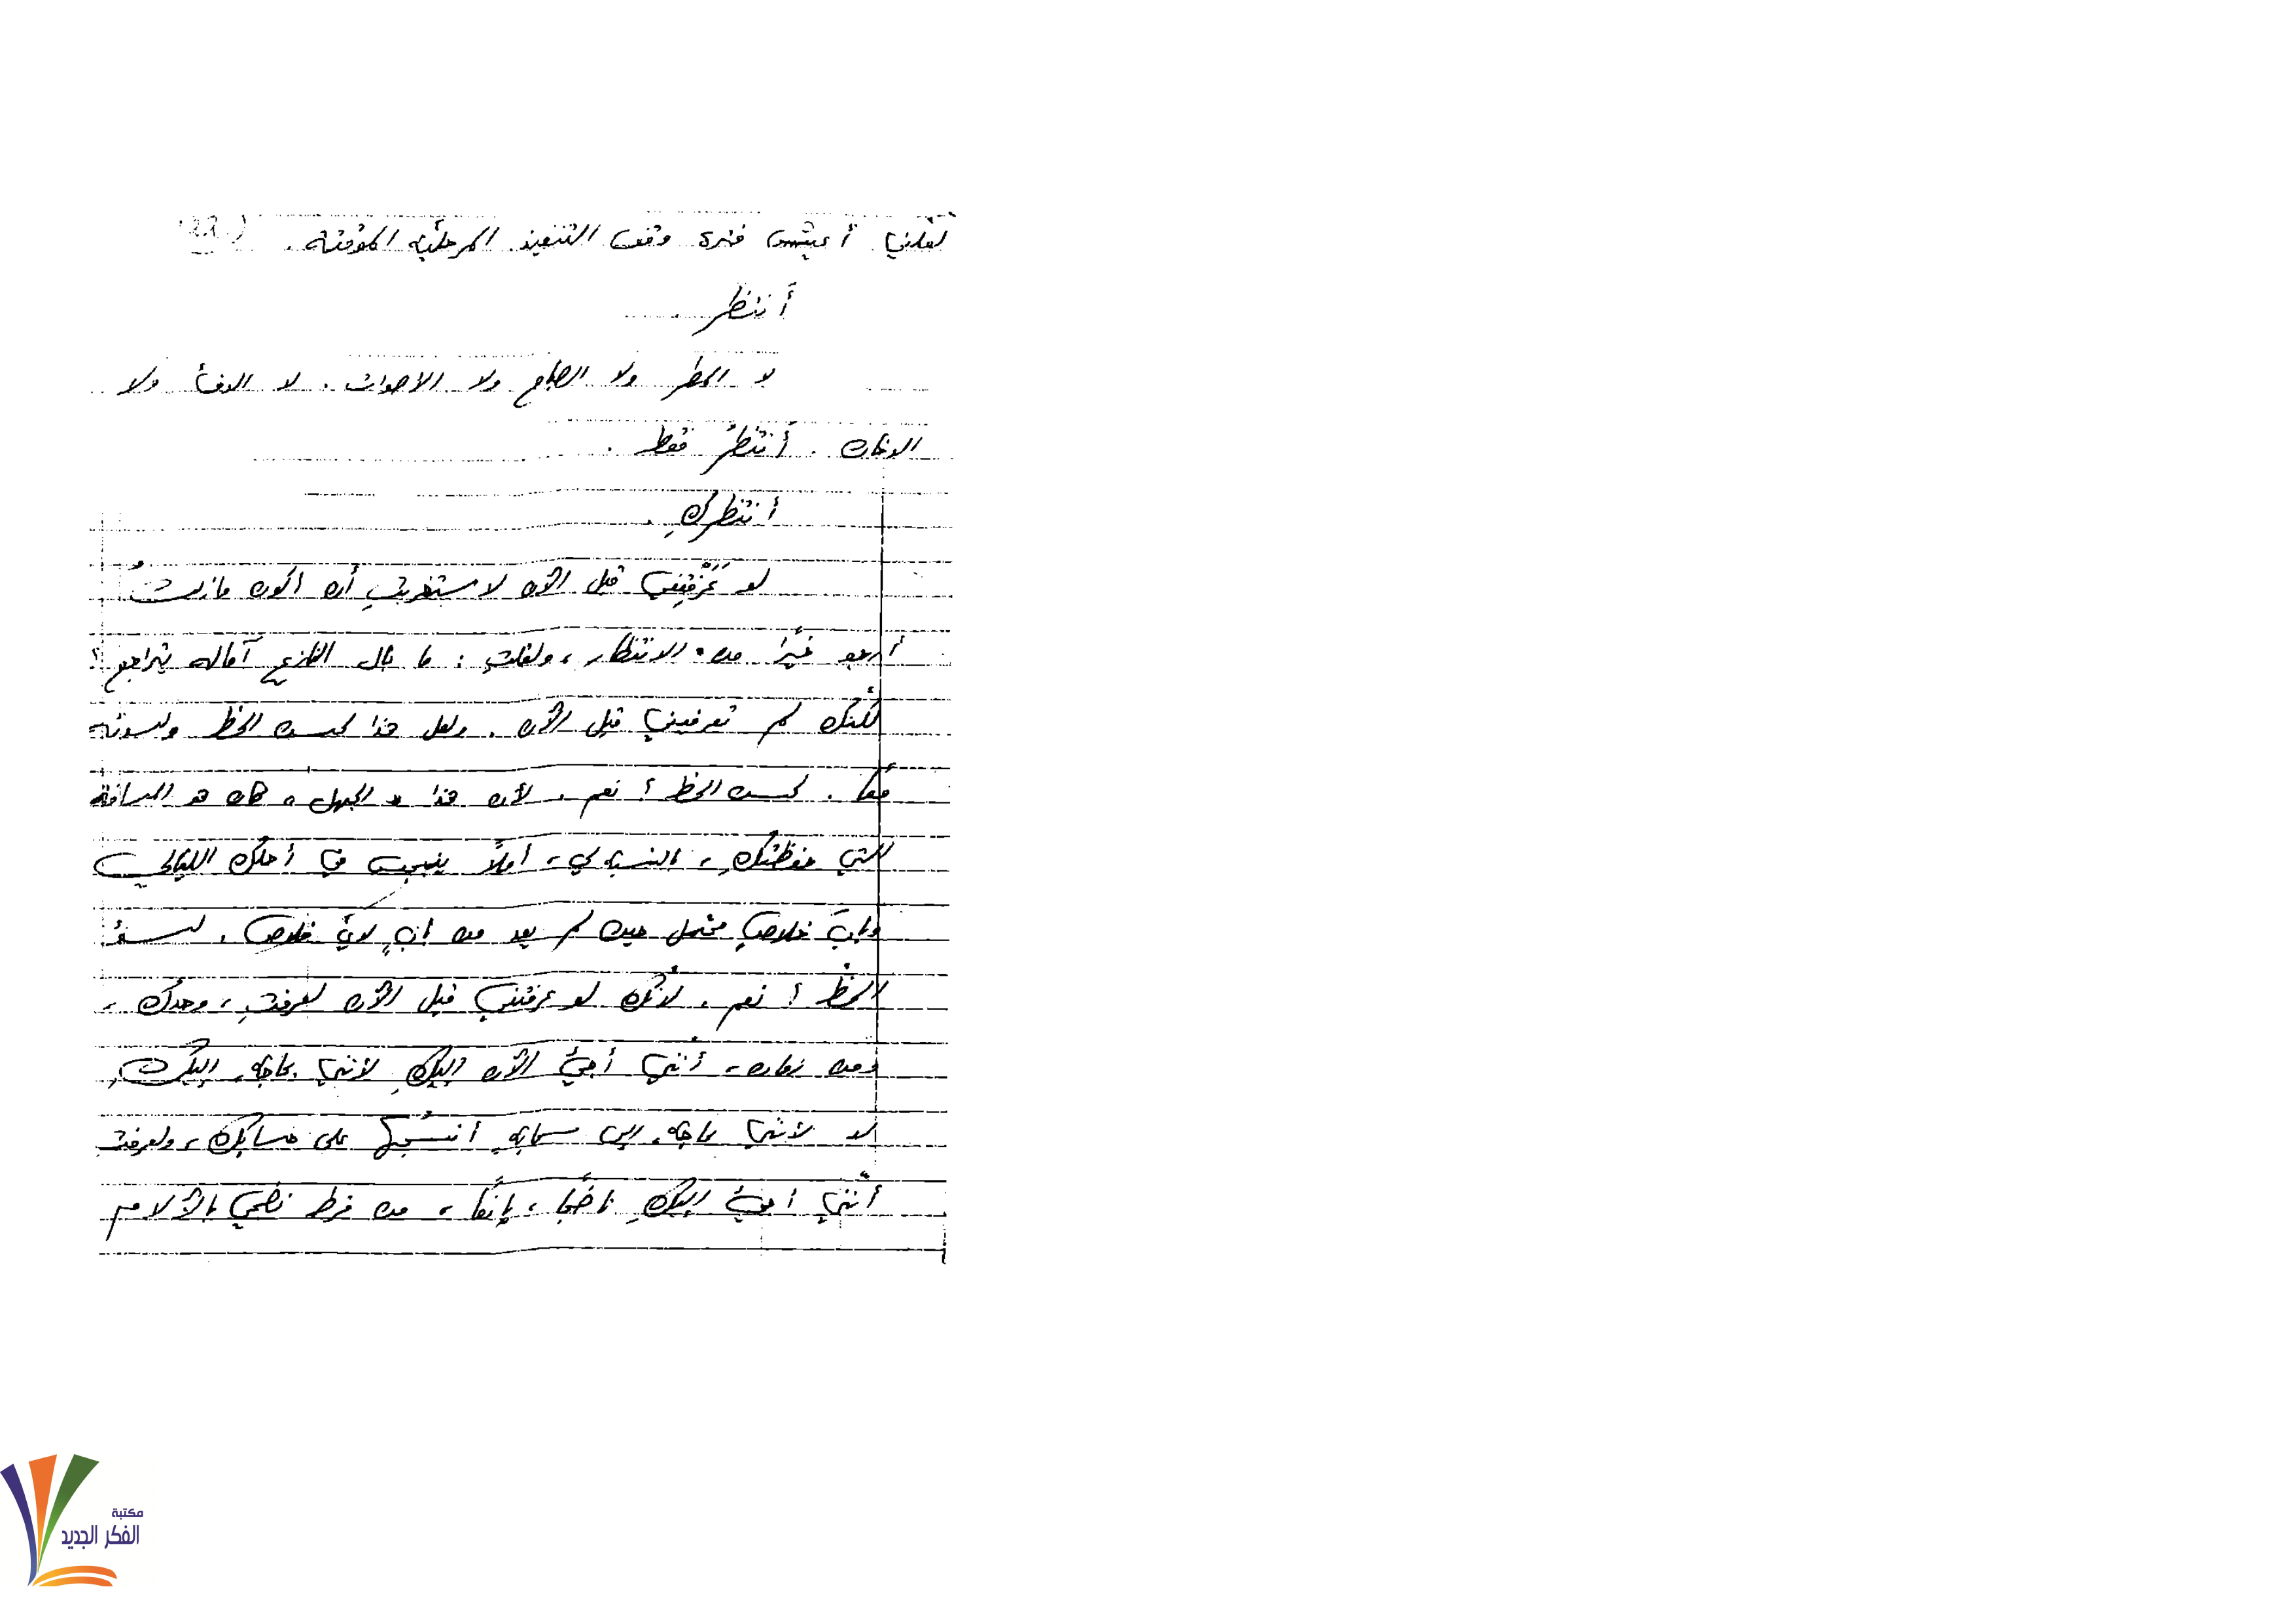 لعلني أعيش فترة وقف التنفيذ المرحليّة المؤقتة.
أنتظر
لا المطر ولا الصباح ولا الأصوات. لا الدفء ولا
الدخان. أنتظرُ فقط.
أنتظركِ.
لو عَرَفْتِني قبل الآن لاستغربتِ أن أكون ما زلتُ
أرجو خيرًا من الانتظار، ولقلتِ: ما بال الفازع آماله يتراجع؟
لكنّك لم تعرفيني قبل الآن. ولعل هذا لحسن الحظ ولسوئه
معًا. لحسن الحظ؟ نعم. لأن هذا «الجهل» كان هو المسافة
التي حفظتكِ، بالنسبة لي، أملاً ينبجس في أحلك الليالي
وبابَ خلاصٍ محتمل حين لم يعد من بابٍ لأيّ خلاص. لسوء
الحظ؟ نعم. لأنّك لو عرفتني قبل الآن لعرفتِ، وحدك،
ومن زمان، أنّني أجيءُ الآن إليكِ لأنّني بحاجة إليكِ،
لا لأنّني بحاجة إلى سحابةٍ أنسُجها على حسابك، ولعرفتِ
أنّني أجيءُ إليكِ ناضجًا، يانعًا، من فرط نضجي بالآلام
مكتبة
الفكر الجديد